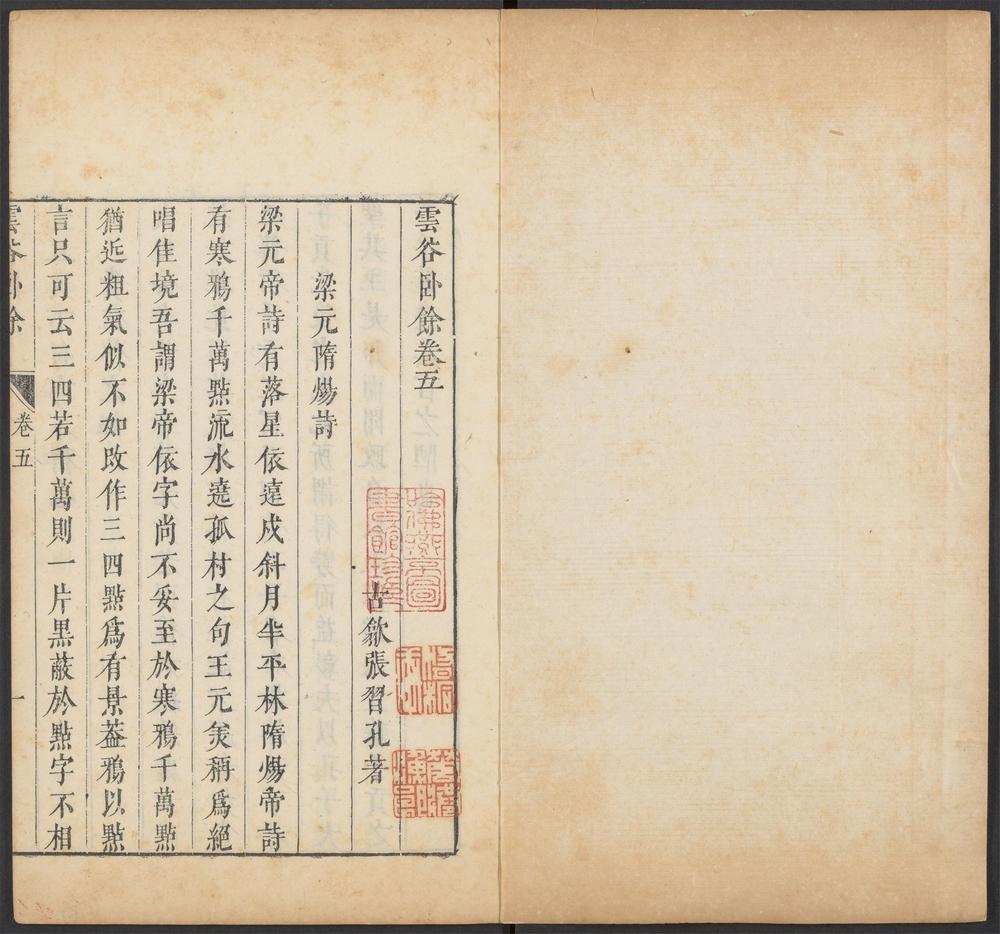 雲谷卧餘卷五
古歙張習孔著
梁元隋煬詩
梁元帝詩有落星依遠戍斜月半平林隋煬帝詩
有寒鴉千萬點流水遶孤村之句王元美稱爲絕
唱佳境吾謂梁帝依字尚不妥至於寒鴉千萬點
猶近粗氣似不如改作三四點爲有景葢鴉以點
言只可云三四若千萬則一片黑蔽於點字不相
雲谷卧餘
卷五
一
哈佛燕京圖
書館珍藏